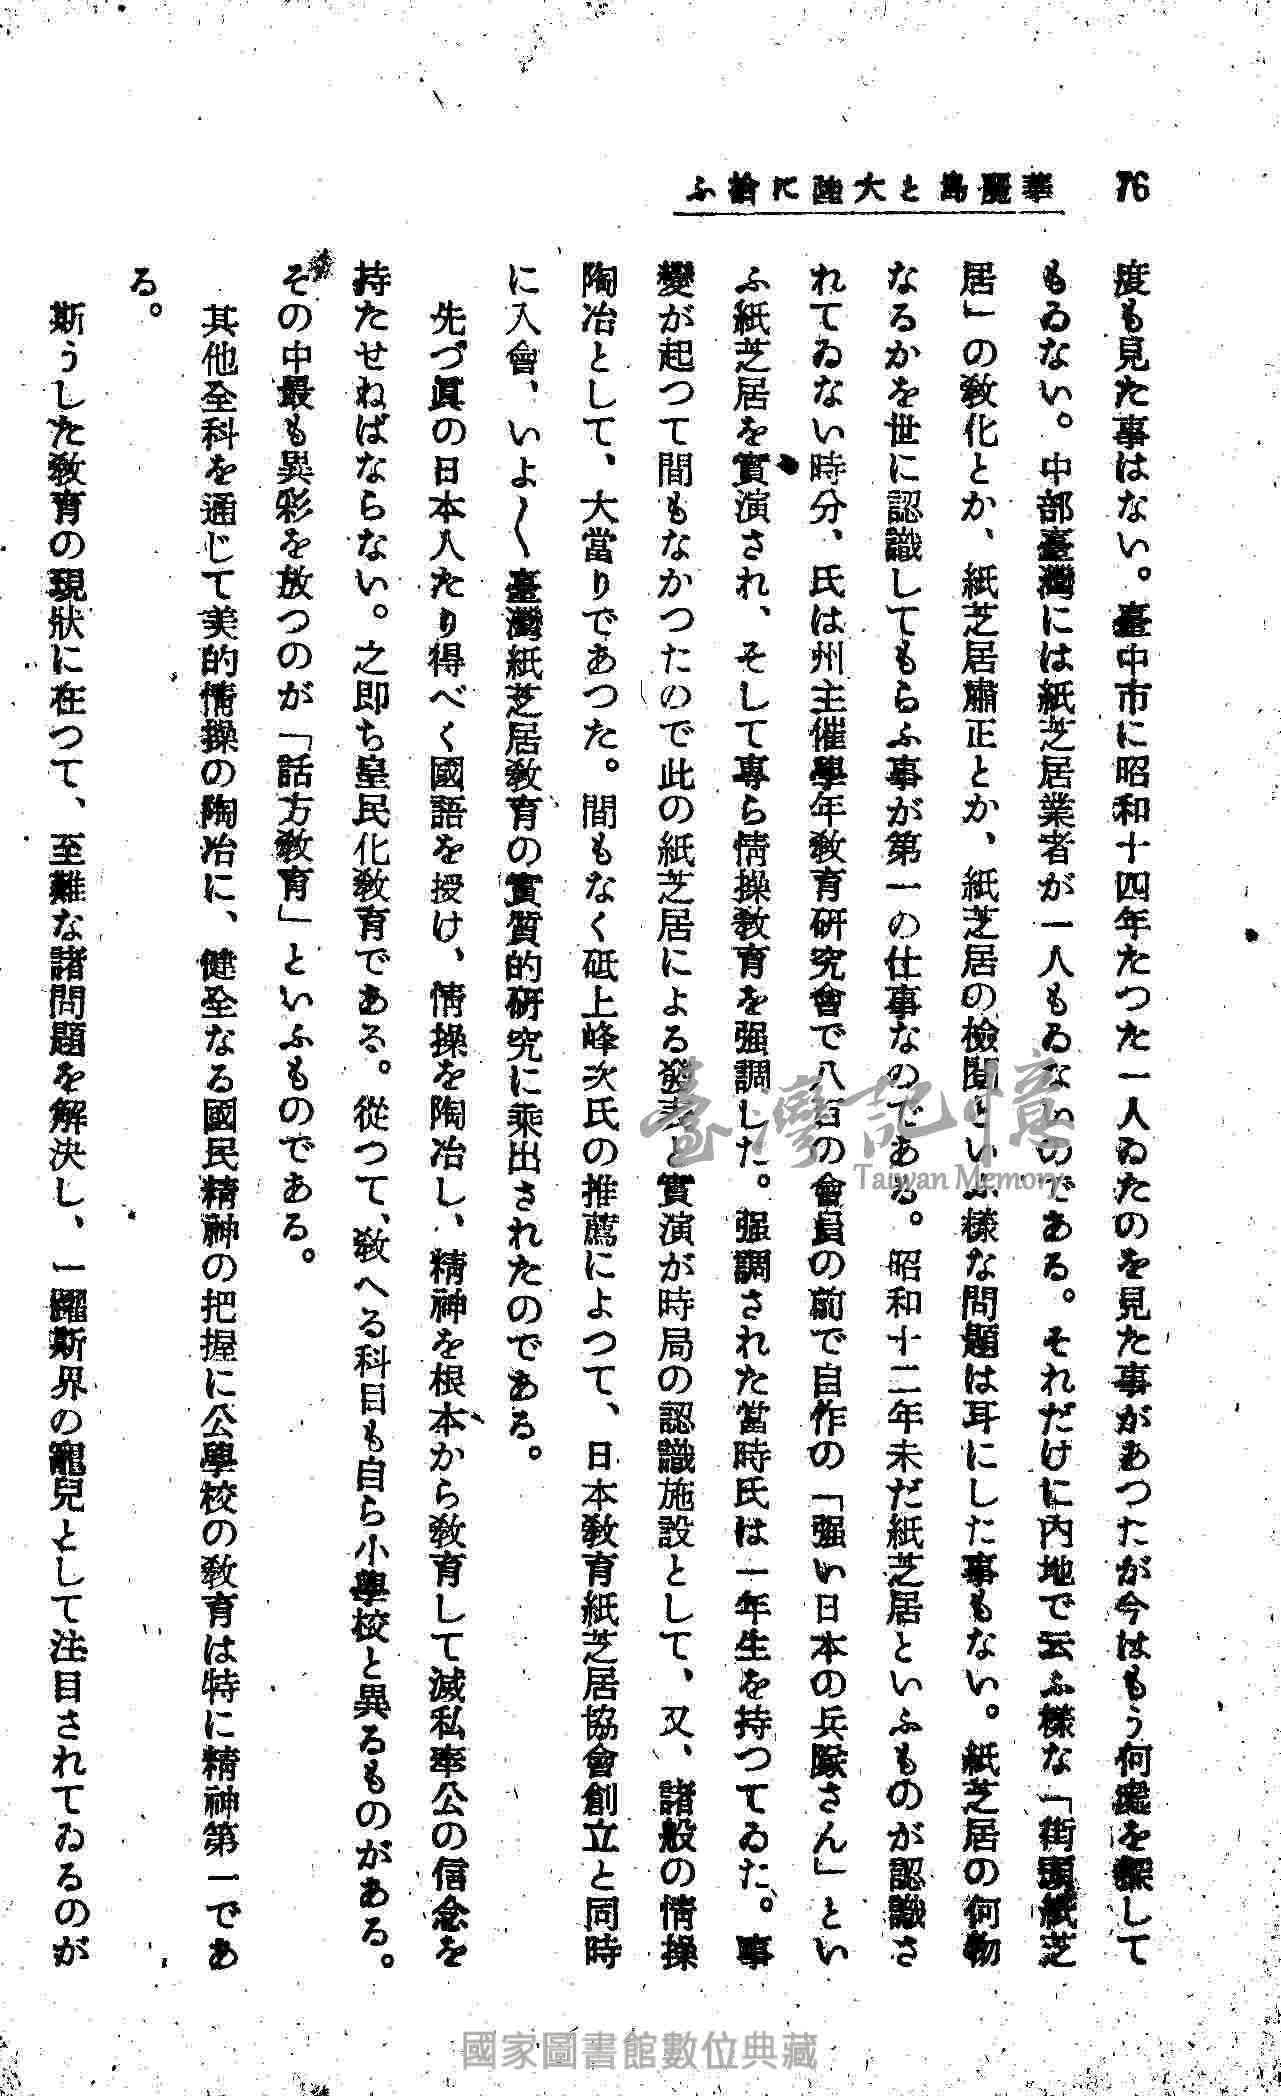 76
華麗島と大陸に拾ふ
度も見た事はない。臺中市に昭和十四年たつた一人ゐたのを見た事があつたが今はもう何處を探して
もゐない。中部臺灣には紙芝居業者が一人もゐないのである。それだけに内地で云ふ樣な「街頭紙芝
居」の敎化とか、紙芝居肅正とか、紙芝居の檢閲といふ樣な問題は耳にした事もない。紙芝居の何物
なるかを世に認識してもらふ事が第一の仕事なのである。昭和十二年未だ紙芝居といふものが認識さ
れてゐない時分、氏は州主催學年敎育硏究會で八百の會員の前で自作の「强い日本の兵隊さん」とい
ふ紙芝居を實演され、そして專ら情操敎育を强調した。强調された當時氏は一年生を持つてゐた。事
變が起つて間もなかつたので此の紙芝居による發表と實演が時局の認識施設として、又、諸般の情操
陶冶として、大當りであつた。間もなく砥上峰次氏の推薦によつて、日本敎育紙芝居協會創立と同時
に入會、いよ〱臺灣紙芝居敎育の實質的硏究に乘出されたのである。
先づ眞の日本人たり得べく國語を授け、情操を陶冶し、精神を根本から敎育して滅私奉公の信念を
持たせねばならない。之即ち皇民化敎育である。從つて、敎へる科目も自ら小學校と異るものがある。
その中最も異彩を放つのが「話方敎育」といふものである。
其他全科を通じて美的情操の陶冶に、健全なる國民精神の把握に公學校の敎育は特に精神第一であ
る。
斯うした敎育の現狀に在つて、至難な諸問題を解決し、一躍斯界の寵兒として注目されてゐるのが
臺灣記憶
Taiwan Memory
國家圖書館數位典藏